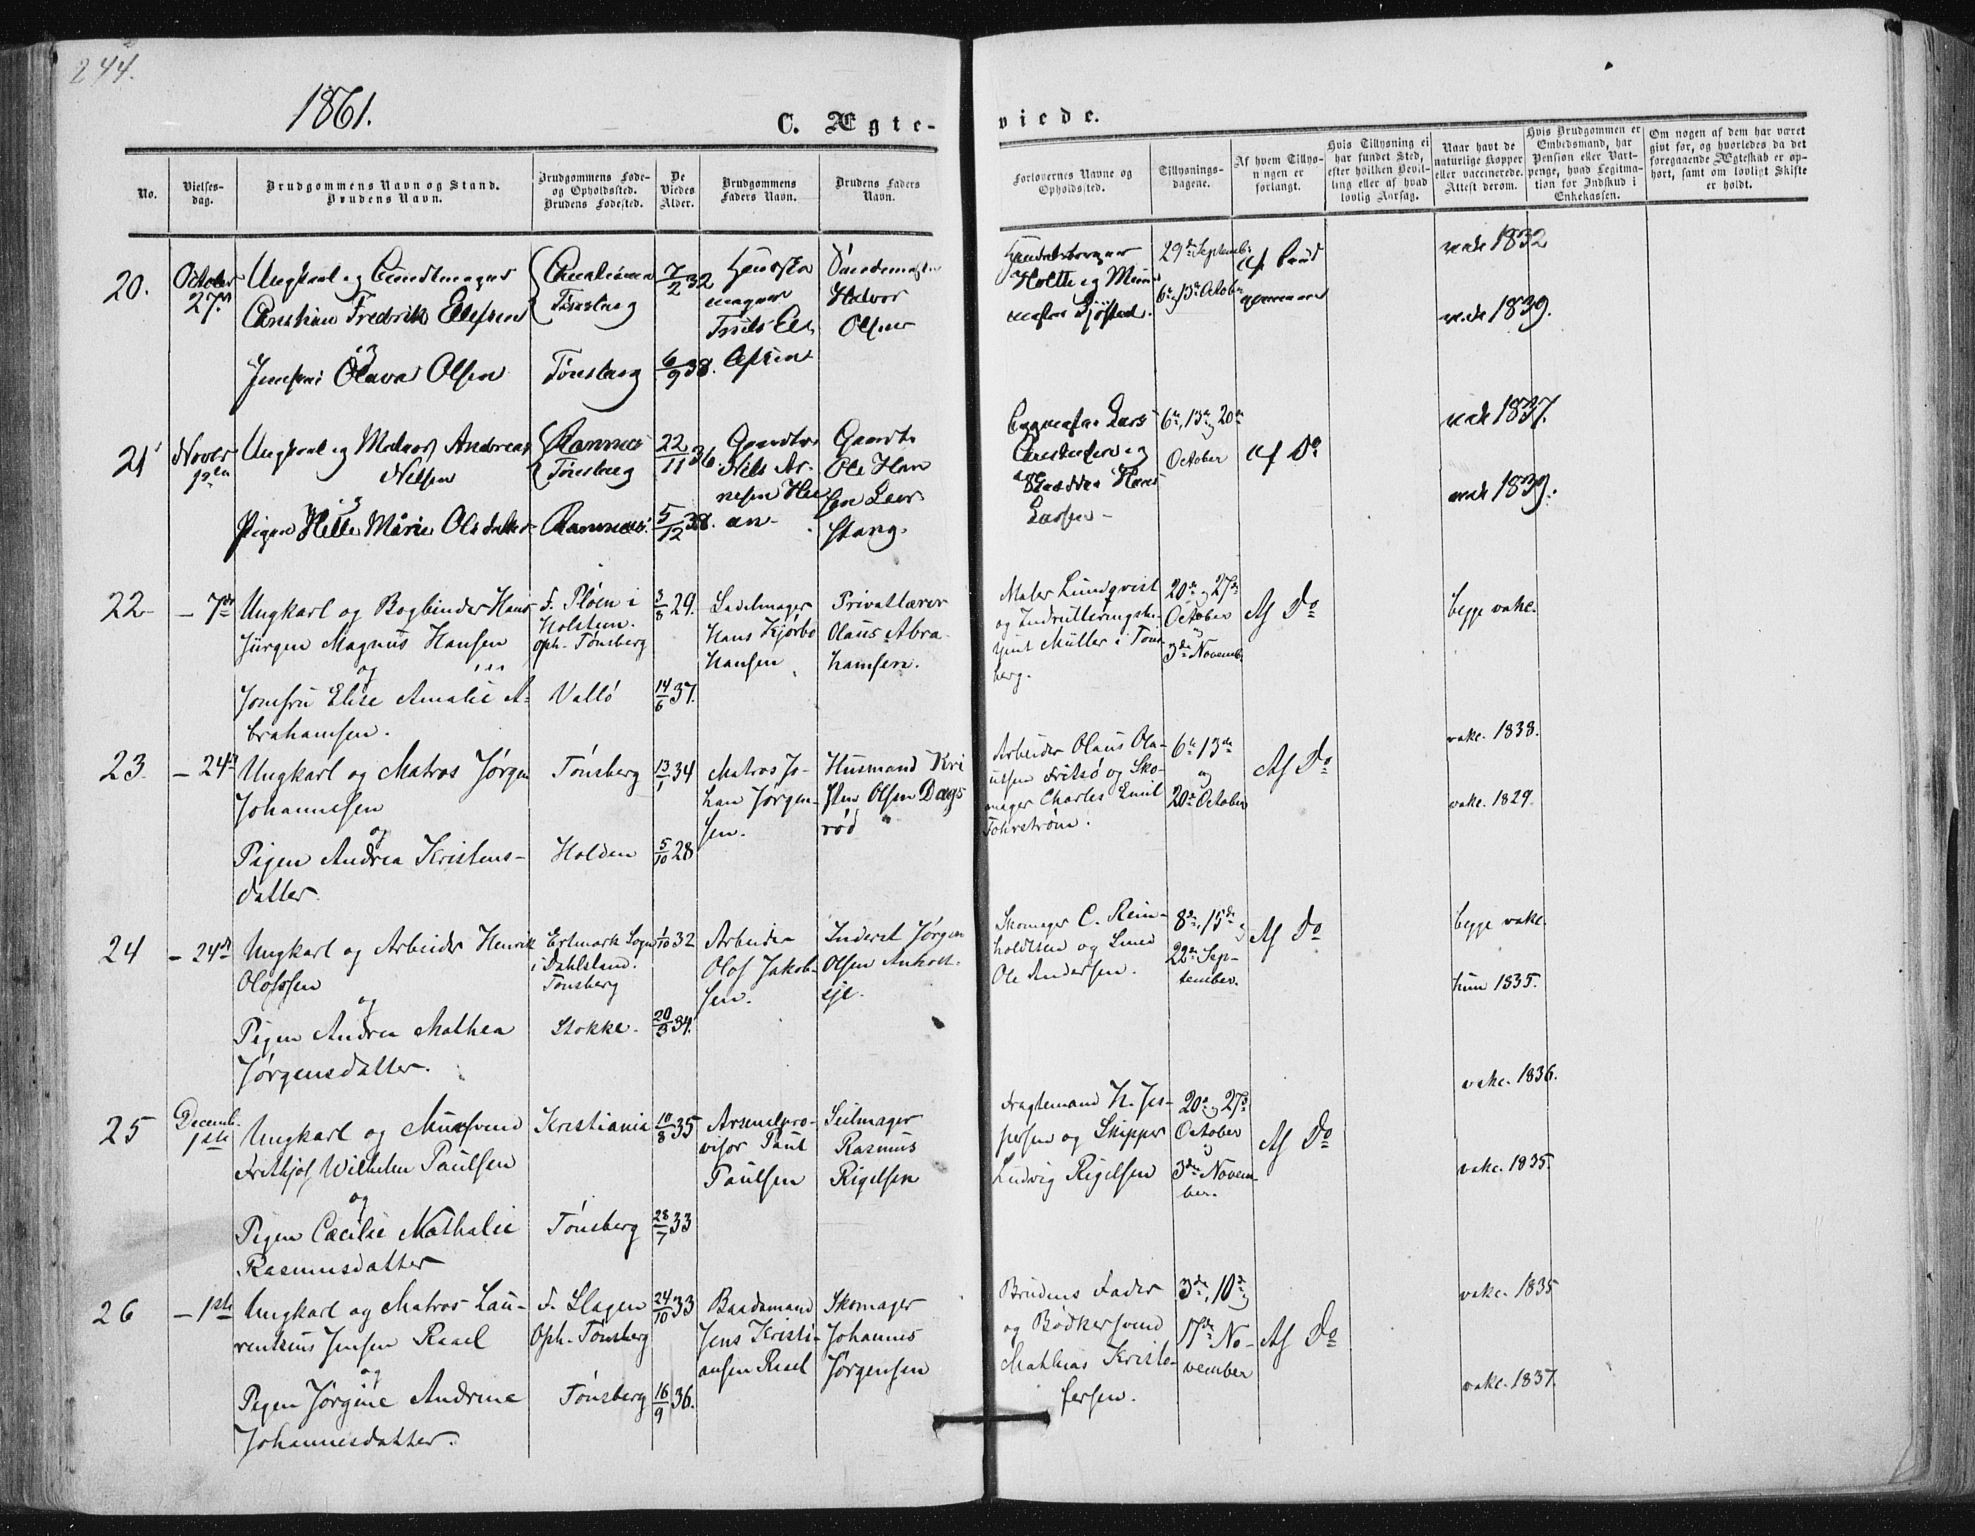 244.
1861.
C. Ægte-
viede.
No.
Vielses-
dag.
Brudgommens Navn og Stand.
Brudens Navn.
Brudgommens Føde-
og Opholdssted.
Brudens Fødested.
De
Viedes
Alder.
Brudgommens
Faders Navn.
Brudens Faders
Navn.
Forlovernes Navne og
Opholdssted.
Tillysnings-
dagene.
Af hvem Tillys-
ningen er
forlangt.
Hvis Tillysning ei
har fundet Sted,
efter hvilken Bevil-
ling eller af hvad
lovlig Aarsag.
Naar havt de
naturlige Kopper
eller vaccinerede.
Attest derom.
Hvis Brudgommen er
Embedsmand, har
Pension eller Vart-
penge, hvad Legitma-
tion for Indskud i
Enkekassen.
Om nogen af dem har været
gift for, og hvorledes da det
foregaaende Ægteskab er op-
hørt, samt om lovligt Skifte
er holdt.
20.
October
27de
Ungkarl og
Christian Fredrik Ellefsen
og
Olava Olsen
Tønsberg
Tønsberg
7/2 32
6/9 38.
Halvor
Olsen
Holtte og
29de Septemb.
6te og 13de October
af Brud
vacc. 1832
vacc. 1839.
21
Novbr
Ungkarl og Matros Andreas
Nilsen
og
Pigen Helle Marie Olsdatter
Ramnæs
Tønsberg
Ramnæs.
22/11 36
5/12 38.
Nils Ar-
nesen
Ole Han
sen
Lars
Christensen og
Hans
Larsen
6te, 13de og 20de
October
af Do
vacc. 1837.
vacc. 1839.
22
– 7de
Ungkarl og Bogbinder Hans
Jürgen Magnus Hansen
og
Jomfru Elise Amalie A-
brahamsen.
F. Pløen i
Holsten.
Oph. Tønsberg
Vallø
3/8 29.
14/6 37.
Sadelmager
Hans Kjørbo
Hansen
Privatlærer
Olaus Abra-
hamsen.
Maler Lundqvist
og Indrulleringsbe-
tjent Müller i Tøns-
berg.
20de og 27de
October
og
3de Novemb.
Af Do
begge vakc.
23.
– 24de
Ungkarl og Matros Jørgen
Johannesen
og
Pigen Andrea Kristens-
datter.
Tønsberg
Holden
13/1 34
5/10 28
Matros Jo-
han Jørgen-
sen.
Husmand Kri
sten Olsen Dags
rød
Arbeider Olaus Ola-
ussen Fritsø og Sko-
mager Charles Emil
6te, 13de
og
20de October
Af Do
vakc. 1838.
vakc. 1829.
24
– 24de
Ungkarl og Arbeider Henrik
Olofssen
og
Pigen Andrea Mathea
Jørgensdatter.
Sogn
i Dahlsland.
Tønsberg
Stokke.
1/10 32
20/3 34.
Arbeider
Olof Jakob-
sen.
Inderst Jørgen
Olsen Anholt-
eje.
Skomager C. Rein-
holdtsen og Smed
Ole Andersen.
8de, 15de og
22de Sep-
tember.
Af Do
begge vakc.
hun 1835.
25
Decemb.
1ste
Ungkarl og Muursvend
Frithjof Wilhelm Paulsen
og
Pigen Cæcilie Nathalie
Rasmusdatter
Kristiania
Tønsberg
10/8 35
28/7 33
Arsenalpro-
visor Paul
Paulsen
Seilmager
Rasmus
Rigelsen
Fragtemand H. Jes-
persen og Skipper
Ludvig Rigelsen
20de og 27de
October
og
3de Novem-
ber.
Af Do
vakc. 1836.
vakc. 1835.
26
– 1ste
Ungkarl og Matros Lau-
rentsius Jensen Raael
og
Pigen Jørgine Andrine
Johannesdatter.
F. Slagen
Oph. Tønsberg
Tønsberg
24/10 33
16/9 36.
Baadsmand
Jens Kristi-
ansen Raael
Skomager
Johannes
Jørgensen
Brudens Fader
og Bødkersvend
Mathias Kristo-
fersen.
3de, 10de og
17de No-
vember
Af Do
vakc. 1835
vakc. 1837.